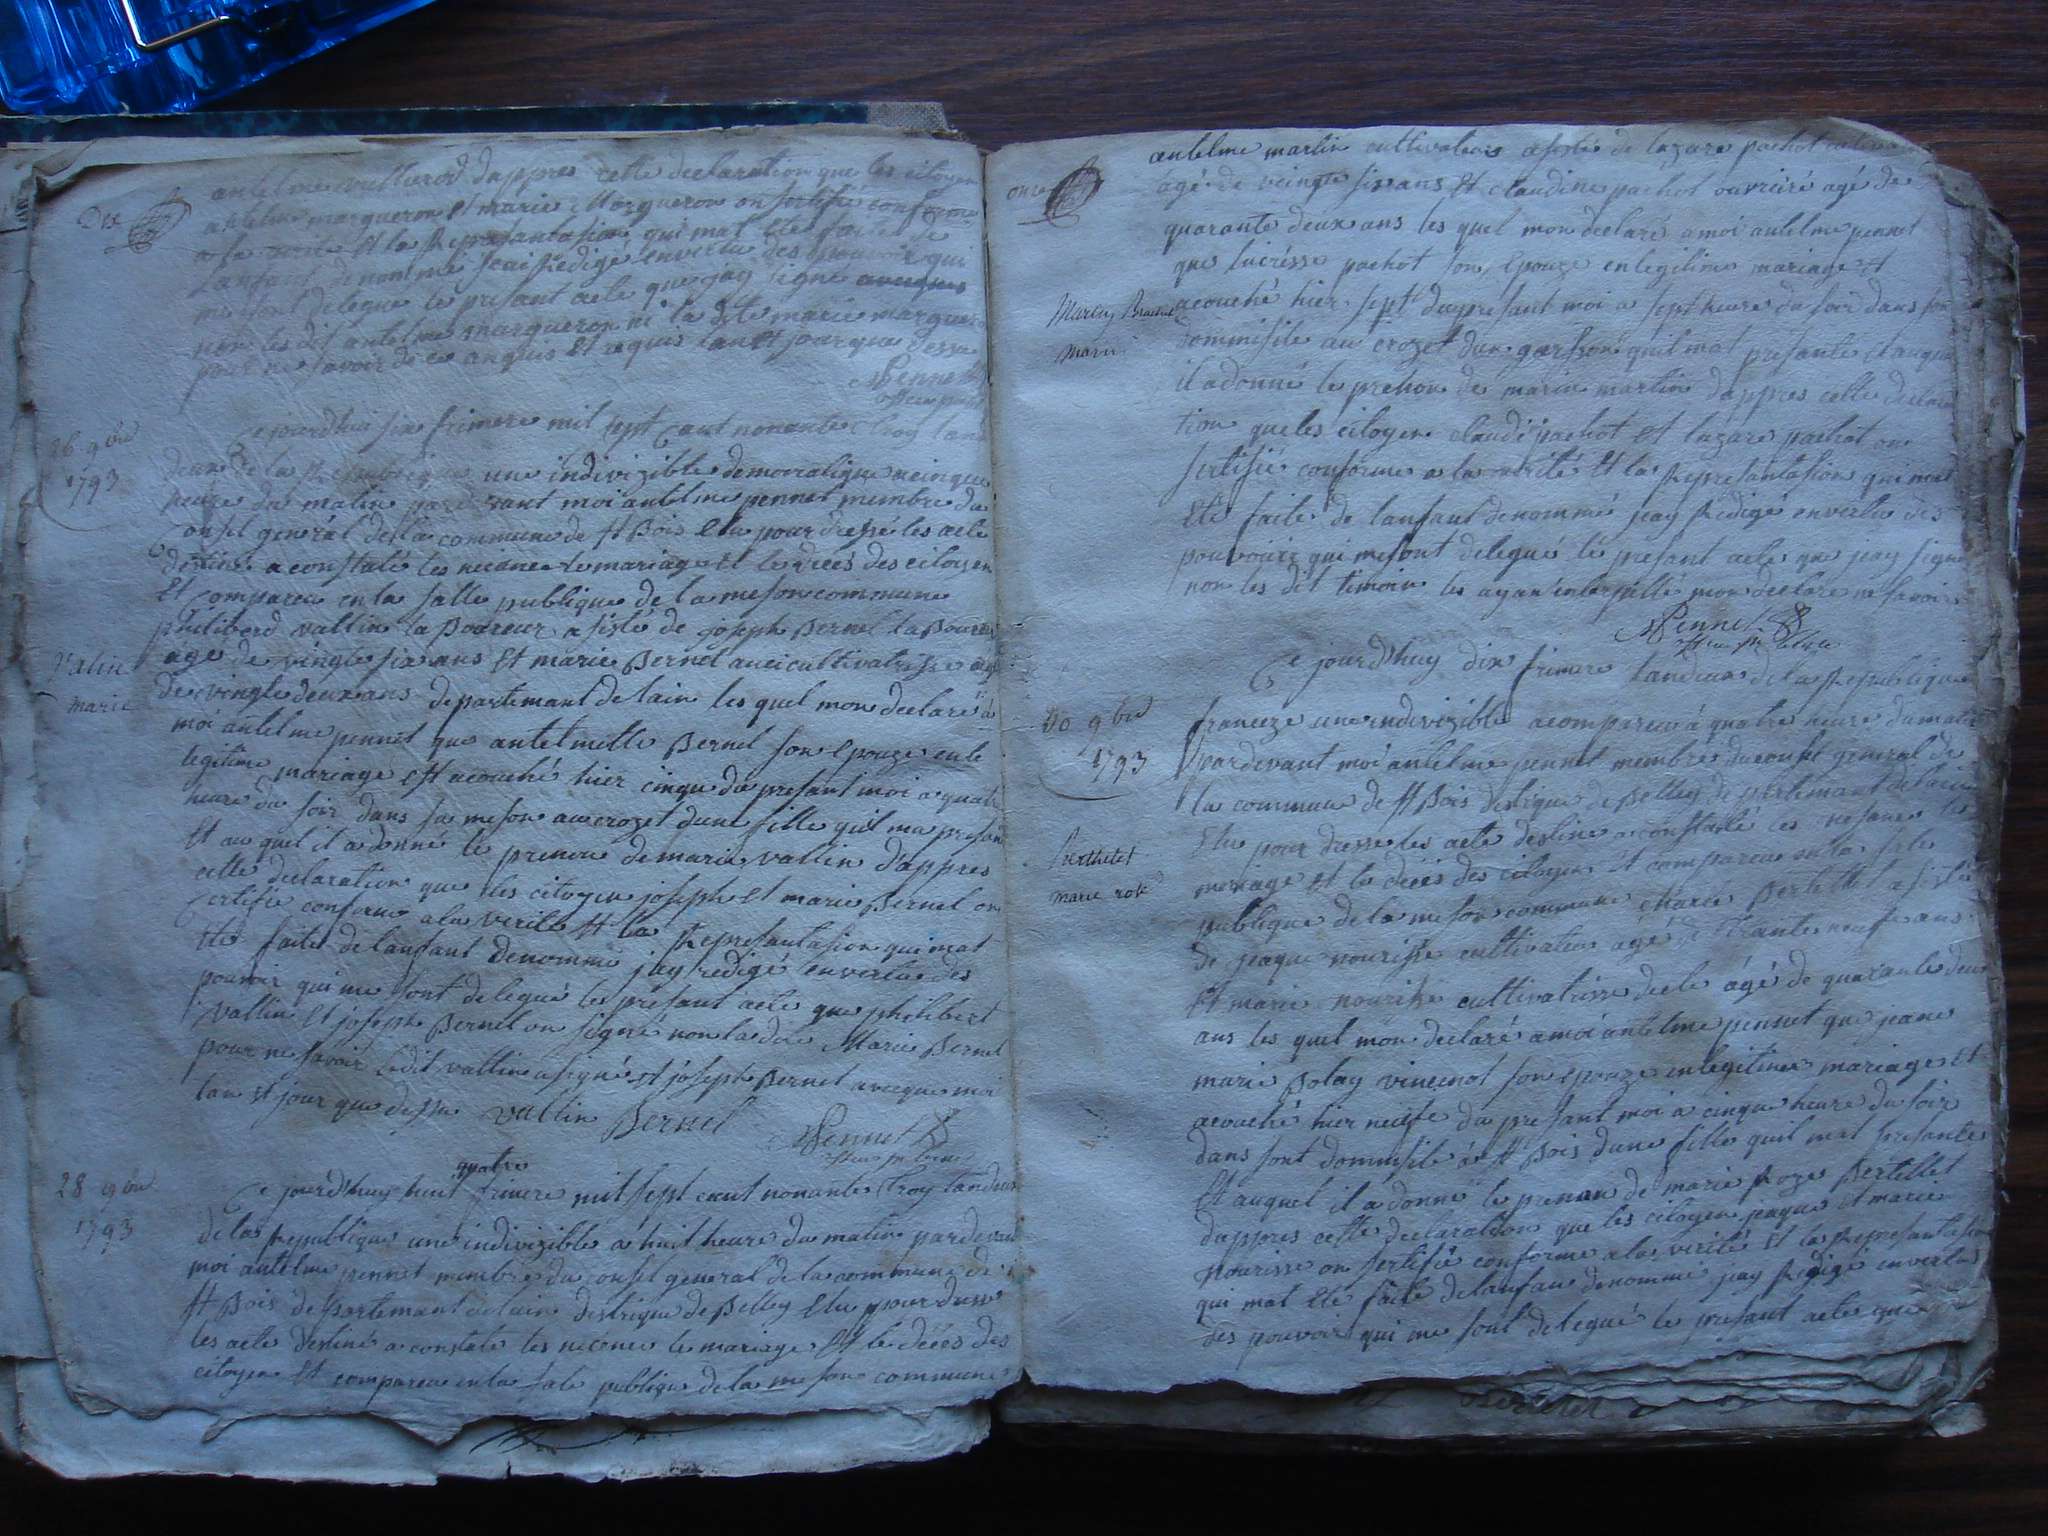 Dix
antelme vullierod dappres cette declaration que les citoyen
antelme margueron et marie Margueron on sertifié conforme
a la verité et la Represantasion qui mat eté faite de
lanfant denommé jeai Redigé envertu des pouvoir qui
me sont delegué le presant acte que jay signé avecques
non les dit antelme margueron ni la dite marie margueron
pour ne savoir de ce anquis et requis lan et jour que dessu
APennet
26 9bre
1793
Ce jourdhui six frimere mil sept cant nonante troy lan
deux de la Republique une indivizible democratique a cinque
heure du matin pardevant moi antelme pennet membre du
Consel general de la commune de st Bois elu pour dressé les acte
destine a constate les nicance le mariage et le decés des citoyen
Et compareu en la salle publique de la meson commune
philiberd vallin laboureur asisté de joseph Bernel laboureur
age de vingte six ans Et marie Bernel auci cultivatrisse agé
Valin
marie
de vingte deux ans departemant de lain les quel mon declaré a
moi antelme pennet que antelmette Bernel son epouze en le
legitime mariage est acouché hier cinque du presant moi a quatre
heure du soir dans sa meson au crozet dune fille quil ma presanté
Et au quel il a donné le prenom de marie vallin d'appres
cette declaration que les citoyen joseph et marie Bernel on
Certifie conforme a la verité et la Represantasion qui mat
eté faite de lanfant denommé jay redigé en vertu des
pouvoir qui me sont delegué le presant acte que philibert
vallin Et joseph Bernel on signé non la dite Marie Bernel
pour ne savoir ledit vallin a signé et joseph Bernel avecque moi
lan et jour que dessu vallin Bernel
APennet
28 9bre
1793
quatre
Ce jourd'huy huit frimere mil sept cent nonante troy lan deux
de la Republique une indivizible a huit heure du matin pardevant
moi antelme pennet membre du consel general de la commune de
st Bois departemant de lain destrique de Belley elu pour dresse
les acte destiné a constate les nicence le mariage et le décés des
citoyen et compareu en la sale publique de la meson commune
onze
antelme martin cultivateur asisté de lazare pachot cultivateur
agé de veingte six ans Et claudine pachot ouvriere agé de
quarante deux ans les quel mon declaré a moi antelme pennet
que lucresse pachot son epouze en legitime mariage et
acouché hier sept du presant moi a sept heure du soir dans son
Martin
marin
dommisile au crozet dun garson quil mat presanté et auquel
il a donné le prenom de marin martin dappres cette declara
tion que les citoyen claudi pachot et lazare pachot on
sertifié conforme a la vérité et la Represantasion qui mat
eté faite de lanfant denommé jeay Redigé en vertu des
pouvoirs qui mesont delegué le presant acte que jeay signé
non les dit timoin les ayan interpellé mon declare ne savoir
APennet
Ce jourd'huy dix frimere landeux de la Republique
30 9bre
1793
franceze une indivizible a compareu á quatre heure du matin
pardevant moi antelme pennet membre du consel general de
la commune de st Bois destrique de Belley departemant de lain
Elu pour dresse les acte destine a constaté les nesance le
Berthelet
marie rose
mariage et le décés des citoyen et compareu en la sale
publique de la meson commune Bertellet asisté
de jaque nourisse cultivateur agé de trante neuf ans
Et marie nourisse cultivatrisse agé de quarante deux
ans les quel mon declaré a moi antelme pennet que jeane
marie Bolay vincenot son epouze en legitime mariage et
acouché hier neufe du presant moi a cinque heure du soir
dans sont dommisile á st Bois dune fille quil mat presanté
Et auquel il a donné le prenom de marie Roze Bertellet
dappres cette declaration que les citoyen jaque et marie
nourisse on sertifié conforme a la verité et la Represantasion
qui mat eté faite de lanfan denommé jeay Redigé en vertu
des pouvoir qui me sont delegué le presant acte que